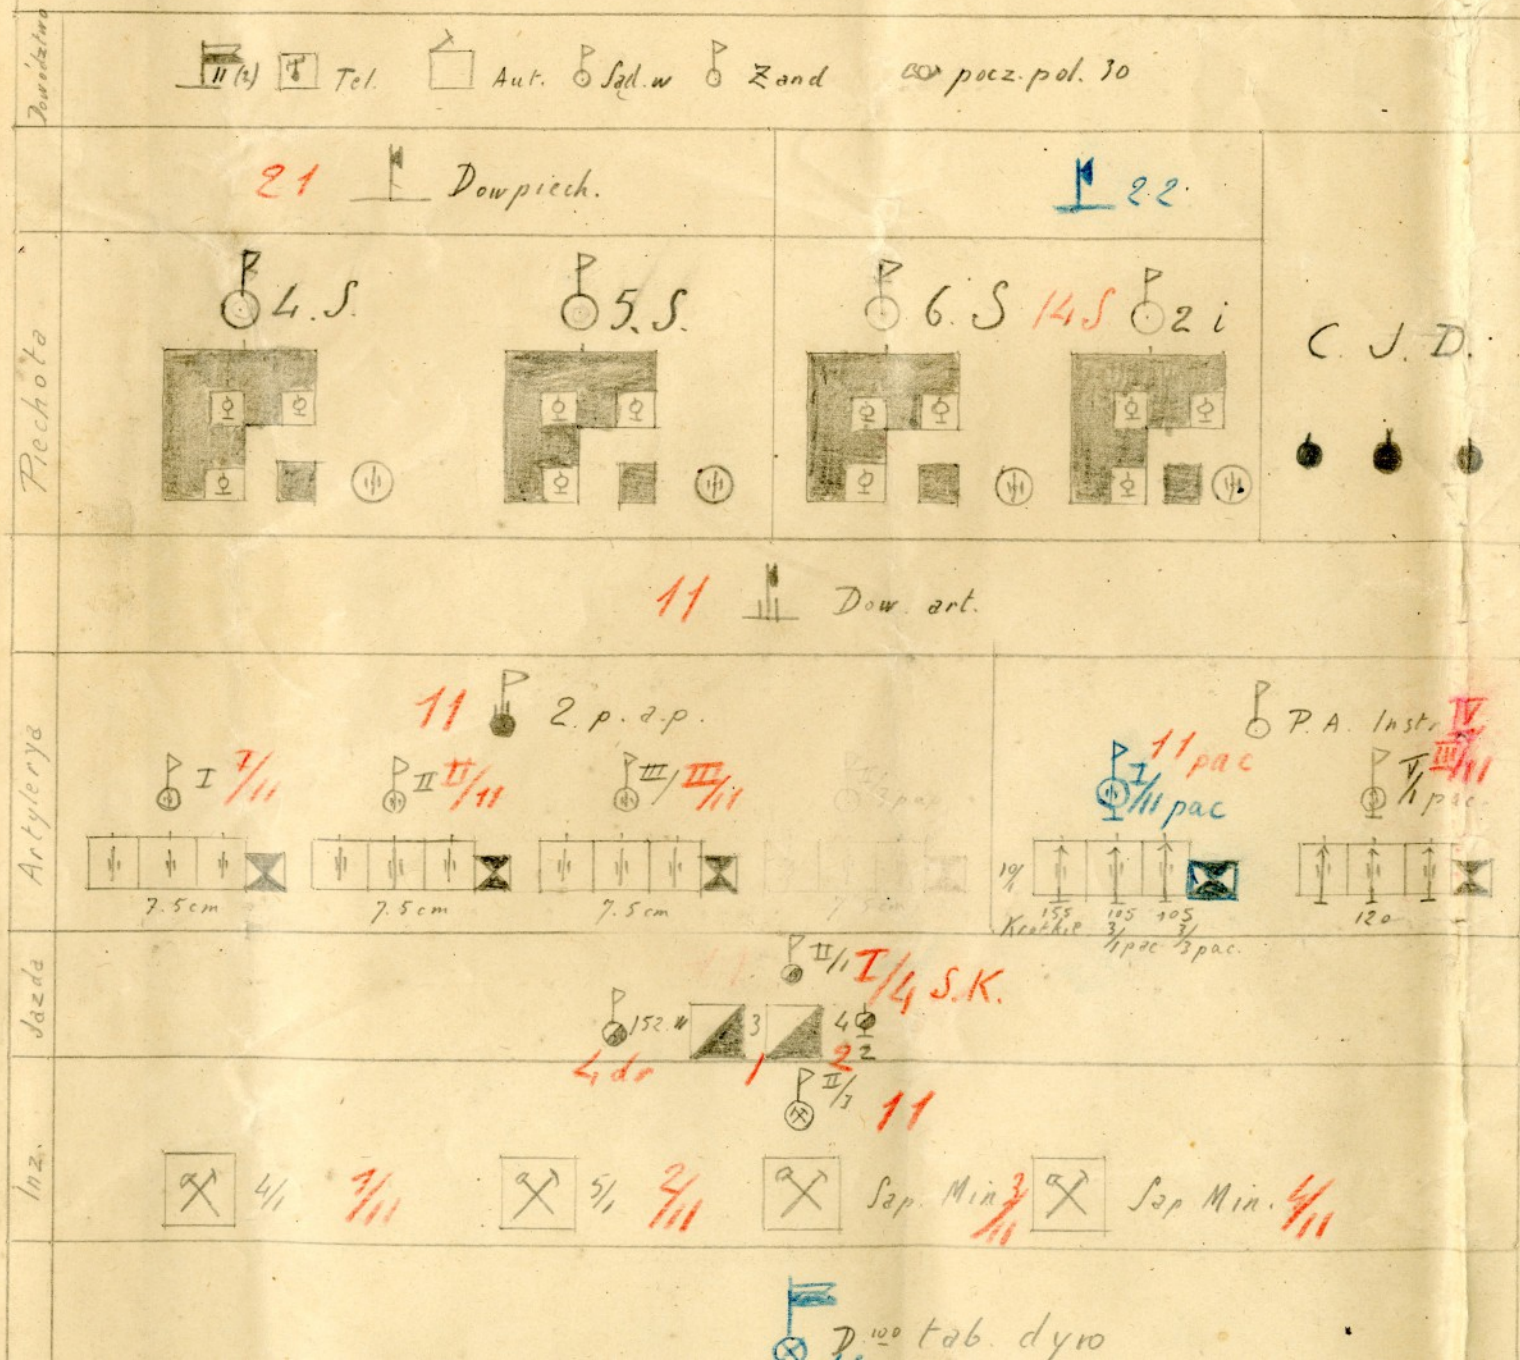 Dowództwo
II (2) Tel. Aut. Sąd. w Żand pocz. pol. 30
21 Dow piech. 22
Piechota
4. S. 5. S. 6. S 14 S 2 i C. J. D.
11 Dow. art.
Artylerya
11 2. p. a. p. P. A. Instr. IV
I I/11 II II/11 III/ III/11 11 pac I/11 pac V/1 pac. III/11
10/1
7.5 cm 7.5 cm 7.5 cm 7.5 cm 155 105 105 120
Krótkie 3/1 pac 3/3 pac.
Jazda
II/1 I/4 S.K.
152. w 3 4 2
4 dr 1 2
Inż.
II/3 11
4/1 1/11 5/1 2/11 Sap. Min 3/11 Sap Min. 4/11
D. tab. dyro